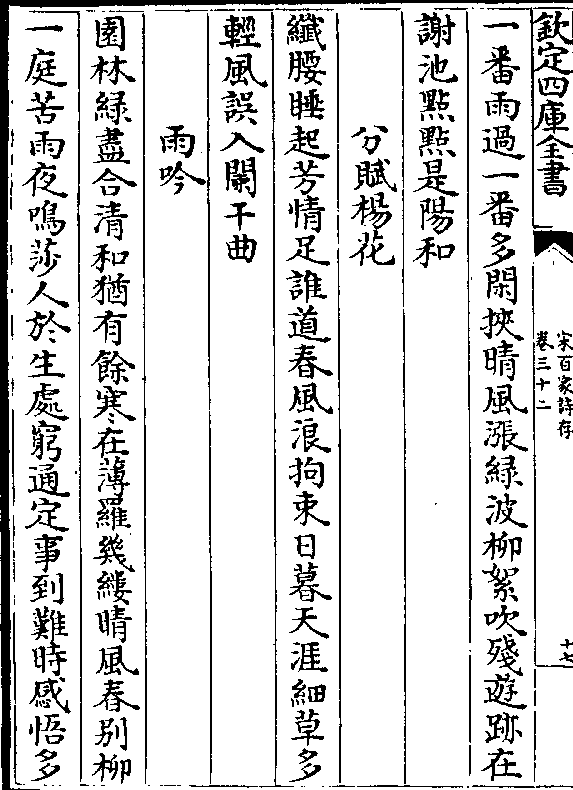 欽定四庫全書
宋百家詩存
卷三十二
十七
一番雨過一番多閑挾晴風漲綠波柳絮吹殘遊跡在
謝池點點是陽和
分賦楊花
纖腰睡起芳情足誰道春風浪拘束日暮天涯細草多
輕風誤入闌干曲
雨吟
園林綠盡合清和猶有餘寒在薄羅幾縷晴風春别柳
一庭苦雨夜鳴莎人於生處窮通定事到難時感悟多